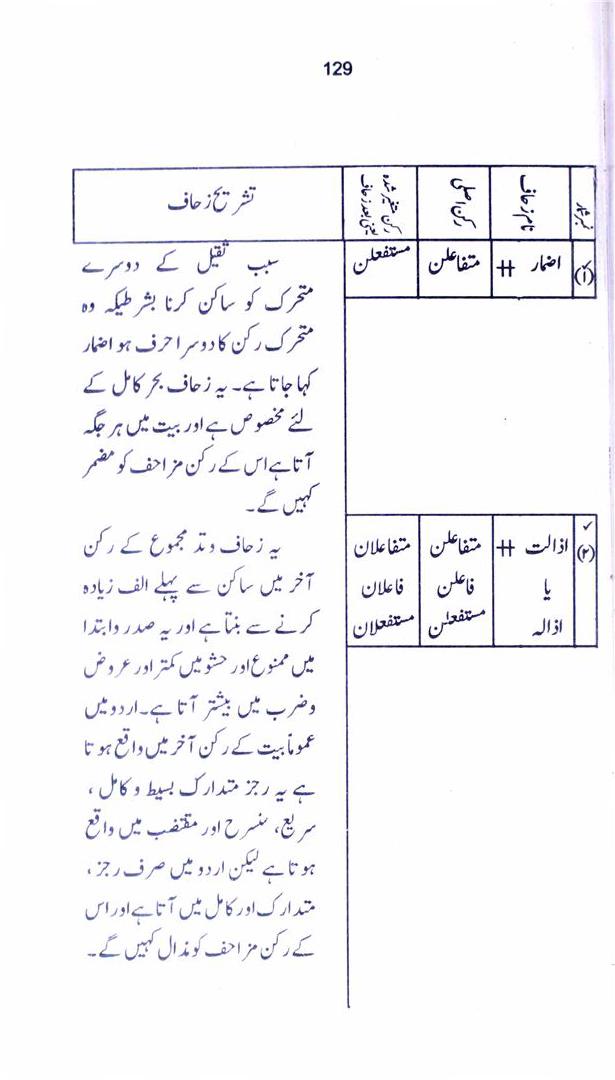 129
نمبر شمار
نام زحاف
رکن اصلی
رکن متغیر شدہ
یعنی بعد زحاف
تشریح زحاف
(۱)
اضمار #
متفاعلن
مستفعلن
سبب ثقیل کے دوسرے
متحرک کو ساکن کرنا بشرطیکہ وہ
متحرک رکن کا دوسرا حرف ہو اضمار
کہا جاتا ہے۔ یہ زحاف بحر کامل کے
لئے مخصوص ہے اور بیت میں ہر جگہ
آتا ہے اس کے رکن مزاحف کو مضمر
کہیں گے۔
(۲)
اذالت #
یا
اذالہ
متفاعلن
فاعلن
مستفعلن
متفاعلان
فاعلان
مستفعلان
یہ زحاف وتد مجموع کے رکن
آخر میں ساکن سے پہلے الف زیادہ
کرنے سے بنتا ہے اور یہ صدر وابتدا
میں ممنوع اور حشو میں کمتر اور عروض
وضرب میں بیشتر آتا ہے۔ اردو میں
عموماً بیت کے رکن آخر میں واقع ہوتا
ہے یہ رجز متدارک بسیط و کامل ،
سریع، منسرح اور مقتضب میں واقع
ہوتا ہے لیکن اردو میں صرف رجز،
متدارک اور کامل میں آتا ہے اور اس
کے رکن مزاحف کو مذال کہیں گے۔